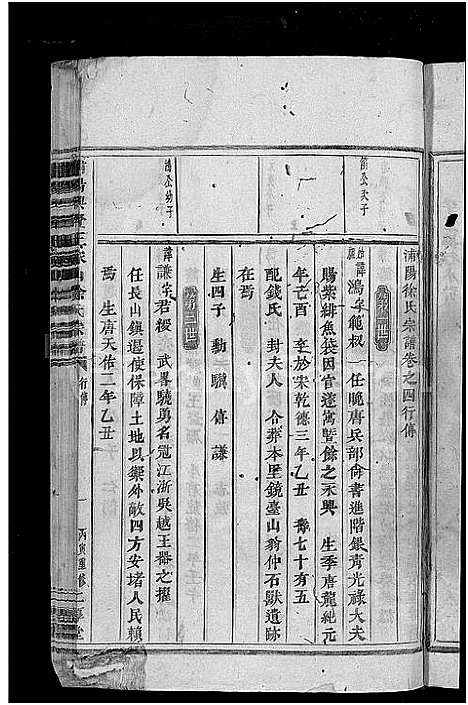 浦陽徐氏宗譜卷之四行傳
第二世
簡公次子
始祖諱鴻字範叔 一任晚唐兵部尚書進階銀青光祿大夫
賜紫緋魚袋因官遂寓暨餘之永興 生季唐龍紀元
年己酉 卒於宋乾德三年乙丑 壽七十有五
配錢氏 封夫人 合葬本里鏡臺山翁仲石獸遺跡
在焉
生四子 勳 驥 脩 謙
第三世
鴻公幼子
諱謙字君稷 武畧驍勇名冠江浙吳越王器之擢
任長山鎮遏使保障土地以禦外敵四方安堵人民賴
焉 生唐天佑二年乙丑
徐氏宗譜
行傳
一
重修